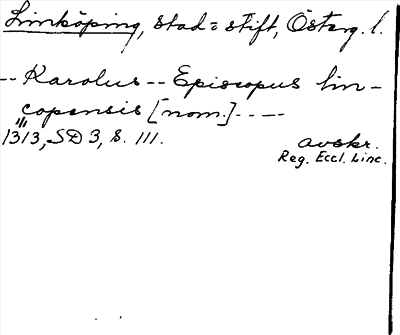 Linköping, stad = stift, Österg. l.
-- Karolus -- Episcopus lin-
copensis [nom.] - - --
1313, SD 3, s. 111.
avskr.
Reg. Eccl. Linc.